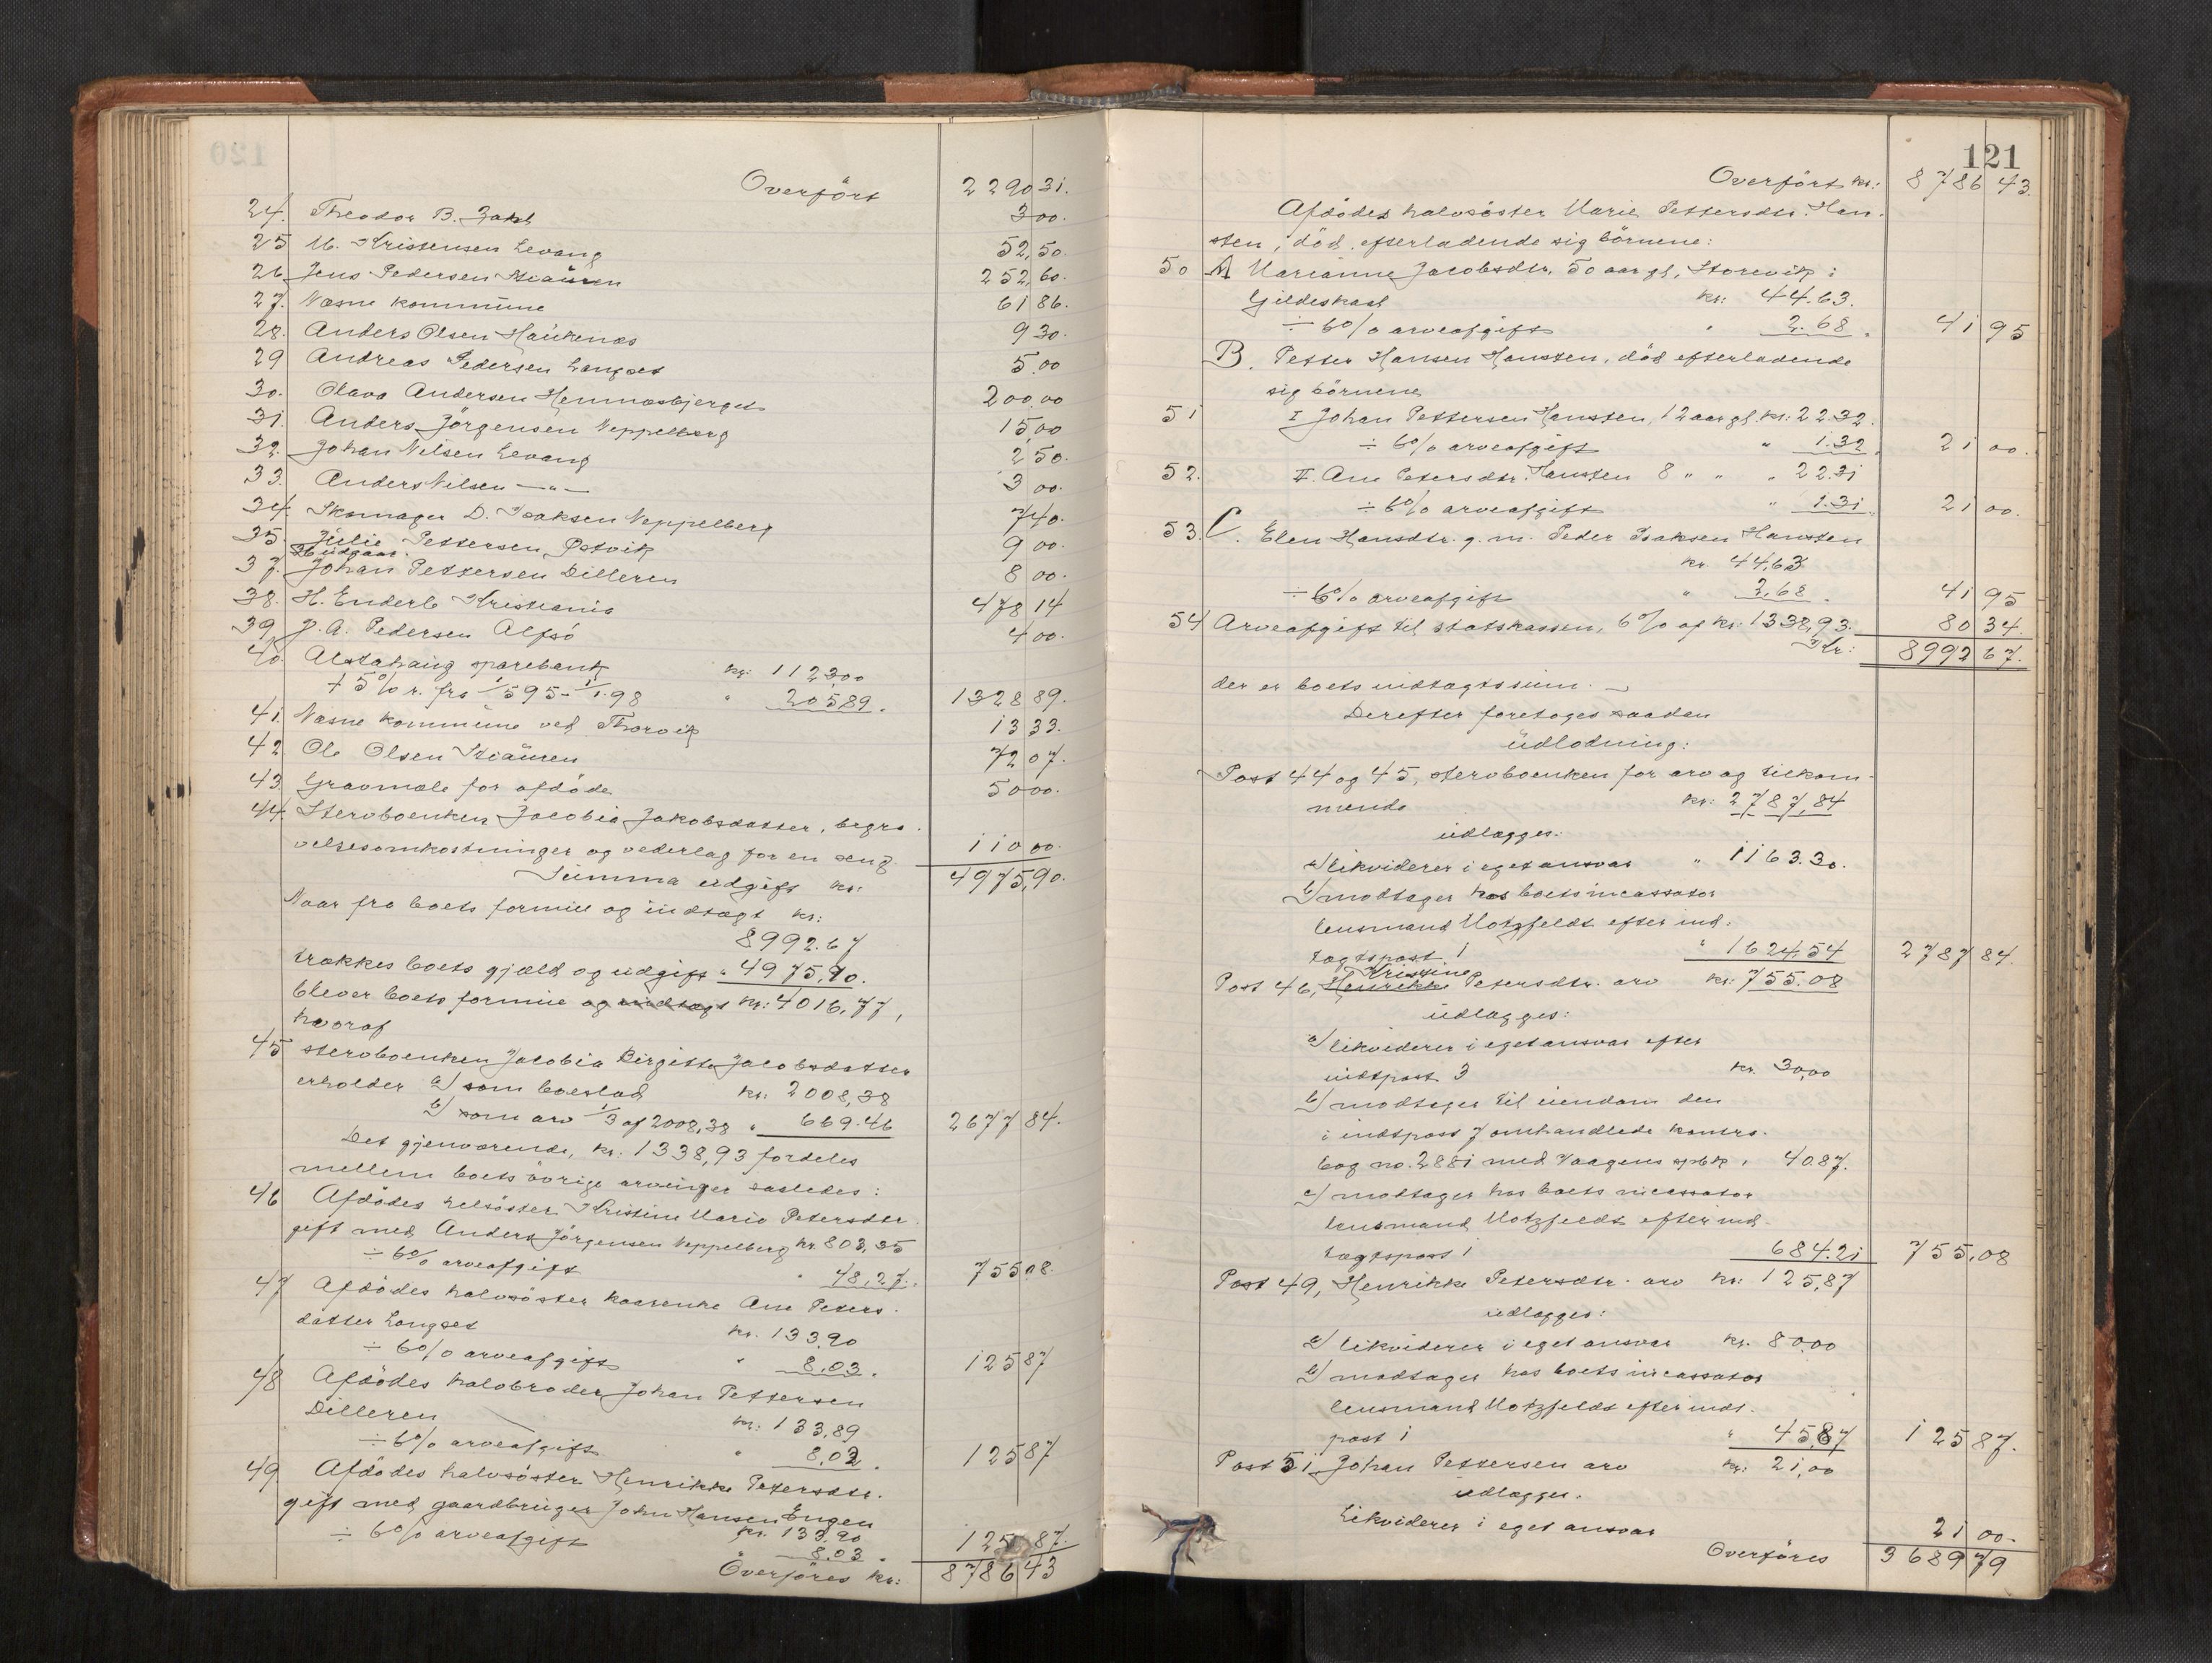 120
Overført 2290 31.
24. Theodor B. Zahl 3 00.
25 M. Kristensen Levang 52,50.
26 Jens Pedersen Stiauren 252,60.
27. Næsne kommune 61 86.
28. Anders Olsen Haukenæs 9 30.
29 Andreas Pedersen Langset 5.00
30. Olava Andersen Hemnæsbjerget 200.00
31. Anders Jörgensen Neppelberg 15,00
32. Johan Nilsen Levang 2 50.
33. Anders Nilsen —"— 3 00.
34. Skomager D. Isaksen Neppelberg 7 40.
35. Julie Pettersen Østvik 9 00.
36 udgaar.
37. Johan Pettersen Dilleren 8 00.
38. H. Enderle Kristiania 478 14
39. J. A. Pedersen Alfsö 4 00.
40. Alstahaug sparebank kr: 1123 00
+ 5% r. fra 1/5 95 - 1/1 98 " 205 89. 1328 89.
41. Næsne kommune ved Thorvik 13 33.
42. Ole Olsen Stiauren 72 07.
43. Gravmæle for afdöde 50 00.
44. Stervboenken Jacobia Jakobsdatter, begra-
velsesomkostninger og vederlag for en seng. 110 00.
Summa udgift kr: 4975,90.
Naar fra boets formue og indtægt kr:
8992.67
trækkes boets gjæld og udgift " 4975,90.
blever boets formue og indtægt kr: 4016,77,
hvoraf
45 stervboenken Jacobia Birgitte Jacobsdatter
erholder a) som boeslod kr: 2008,38
b) som arv 1/3 af 2008,38 " 669.46 2677 84.
Det gjenværende, kr: 1338,93 fordeles
mellem boets övrige arvinger saaledes:
46 Afdödes helsöster Kristine Marie Petersdtr.
gift med Anders Jörgensen Neppelberg kr. 803,35
÷ 6% arveafgift " 48,27. 755 08.
47 Afdödes halvsöster kaarenke Ane Peters-
datter Langset kr. 133.90
÷ 6% arveafgift " 8.03. 125 87
48 Afdödes halvbroder Johan Pettersen
Dilleren kr: 133,89
÷ 6% arveafgift " 8.02. 125 87
49 Afdödes halvsöster Henrikke Petersdtr.
gift med gaardbruger John Hansen Engen
kr. 133.90
÷ 6% arveafgift 8.03. 125 87.
Overföres kr: 8786 43
121
Overført kr: 8786 43.
Afdödes halvsöster Marie Pettersdtr. Han-
sten, död, efterladende sig börnene:
50 A Marianne Jacobsdtr. 50 aar gl, Storevik i
Gildeskaal kr: 44.63.
÷ 6% arveafgift " 2.68. 41 95
B. Petter Hansen Hansten, död efterladende
sig börnene
51 I Johan Pettersen Hansten, 12 aar gl. kr: 22.32.
÷ 6% arveafgift " 1.32. 21 00.
52. II. Ane Petersdtr. Hansten 8 " " " 22.31
÷ 6% arveafgift " 1.31. 21 00.
53. C. Elen Hansdtr. g. m. Peder Isaksen Hansten
kr. 44,63
÷ 6% arveafgift " 2,68. 41 95
54 Arveafgift til statskassen, 6% af kr: 1338,93. 80 34.
Kr: 8992 67.
der er boets indtægtssum. —
Derefter foretoges saadan
udlodning:
Post 44 og 45, stervboenken for arv og tilkom-
mende kr: 2787,84
udlægges:
a) likviderer i eget ansvar " 1163.30.
b) modtager hos boets incassator
lensmand Motzfeldt efter ind-
tægtspost 1 " 1624,54 2787 84.
Kristine
Post 46, Henrikke Petersdtr. arv kr: 755.08
udlægges:
a) likviderer i eget ansvar efter
indtpost 3 kr. 30,00
b) modtager til eiendom den
i indtpost 7 omhandlede kontra-
bog no. 2881 med Vaagens spbk " 40.87.
c) modtager hos boets incassator
lensmand Motzfeldt efter ind-
tægtspost 1 684.21 755,08
Post 49, Henrikke Petersdtr. arv kr: 125,87
udlægges:
a) likviderer i eget ansvar kr. 80.00
b) modtager hos boets incassator
lensmand Motzfeldt efter indt.
post 1 " 45,87 125 87.
Post 51 Johan Pettersen arv kr: 21,00
udlægges.
Likviderer i eget ansvar 21 00.
Overföres 3689 79